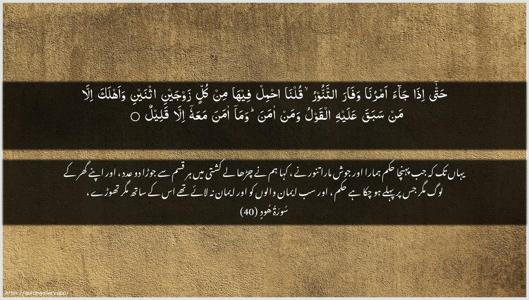 حَتّٰۤی اِذَا جَآءَ اَمْرُنَا وَفَارَ التَّنُّوْرُ ۙ قُلْنَا احْمِلْ فِیْهَا مِنْ کُلٍّ زَوْجَیْنِ اثْنَیْنِ وَاَهْلَکَ اِلَّا
مَنْ سَبَقَ عَلَیْهِ الْقَوْلُ وَمَنْ اٰمَنَ ؕ وَمَاۤ اٰمَنَ مَعَهٗۤ اِلَّا قَلِیْلٌ ○
یہاں تک کہ جب پہنچا حکم ہمارا اور جوش مارا تنور نے ، کہا ہم نے چڑھا لے کشتی میں ہر قسم سے جوڑا دو عدد ، اور اپنے گھر کے
لوگ مگر جس پر پہلے ہو چکا ہے حکم ، اور سب ایمان والوں کو اور ایمان نہ لائے تھے اس کے ساتھ مگر تھوڑے ،
سُوْرَةُ هُوْدٍ (40)